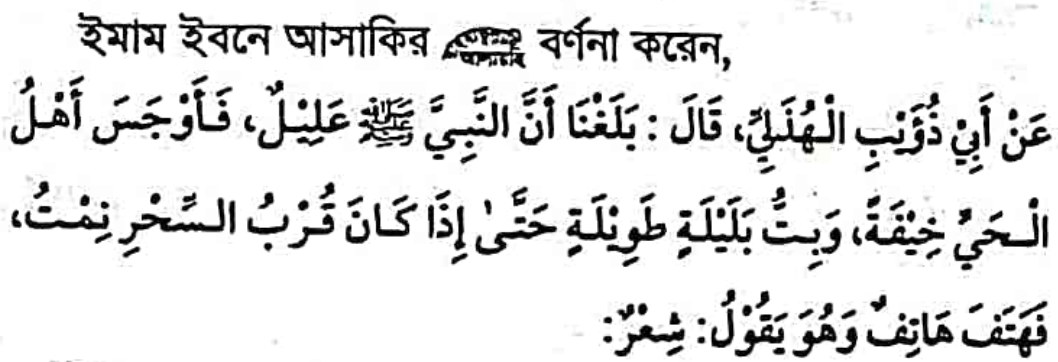 ইমাম ইবনে আসাকির বর্ণনা করেন,
عَنْ أَبِيْ ذُؤَيْبِ الْهُذَلِيِّ، قَالَ : بَلَغْنَا أَنَّ النَّبِيَّ ﷺ عَلِيْلٌ، فَأَوْجَسَ أَهْلُ
الْـحَيِّ خِيْفَةً، وَبِتُّ بَلَيْلَةٍ طَوِيْلَةٍ حَتَّىٰ إِذَا كَـانَ قُـرْبُ الـسِّحْرِ نِمْتُ،
فَهَتَفَ هَاتِفٌ وَهُوَ يَقُوْلُ: شِعْرٌ: